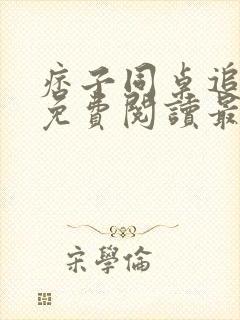 痞子同桌追
免費閱讀最
宋學倫